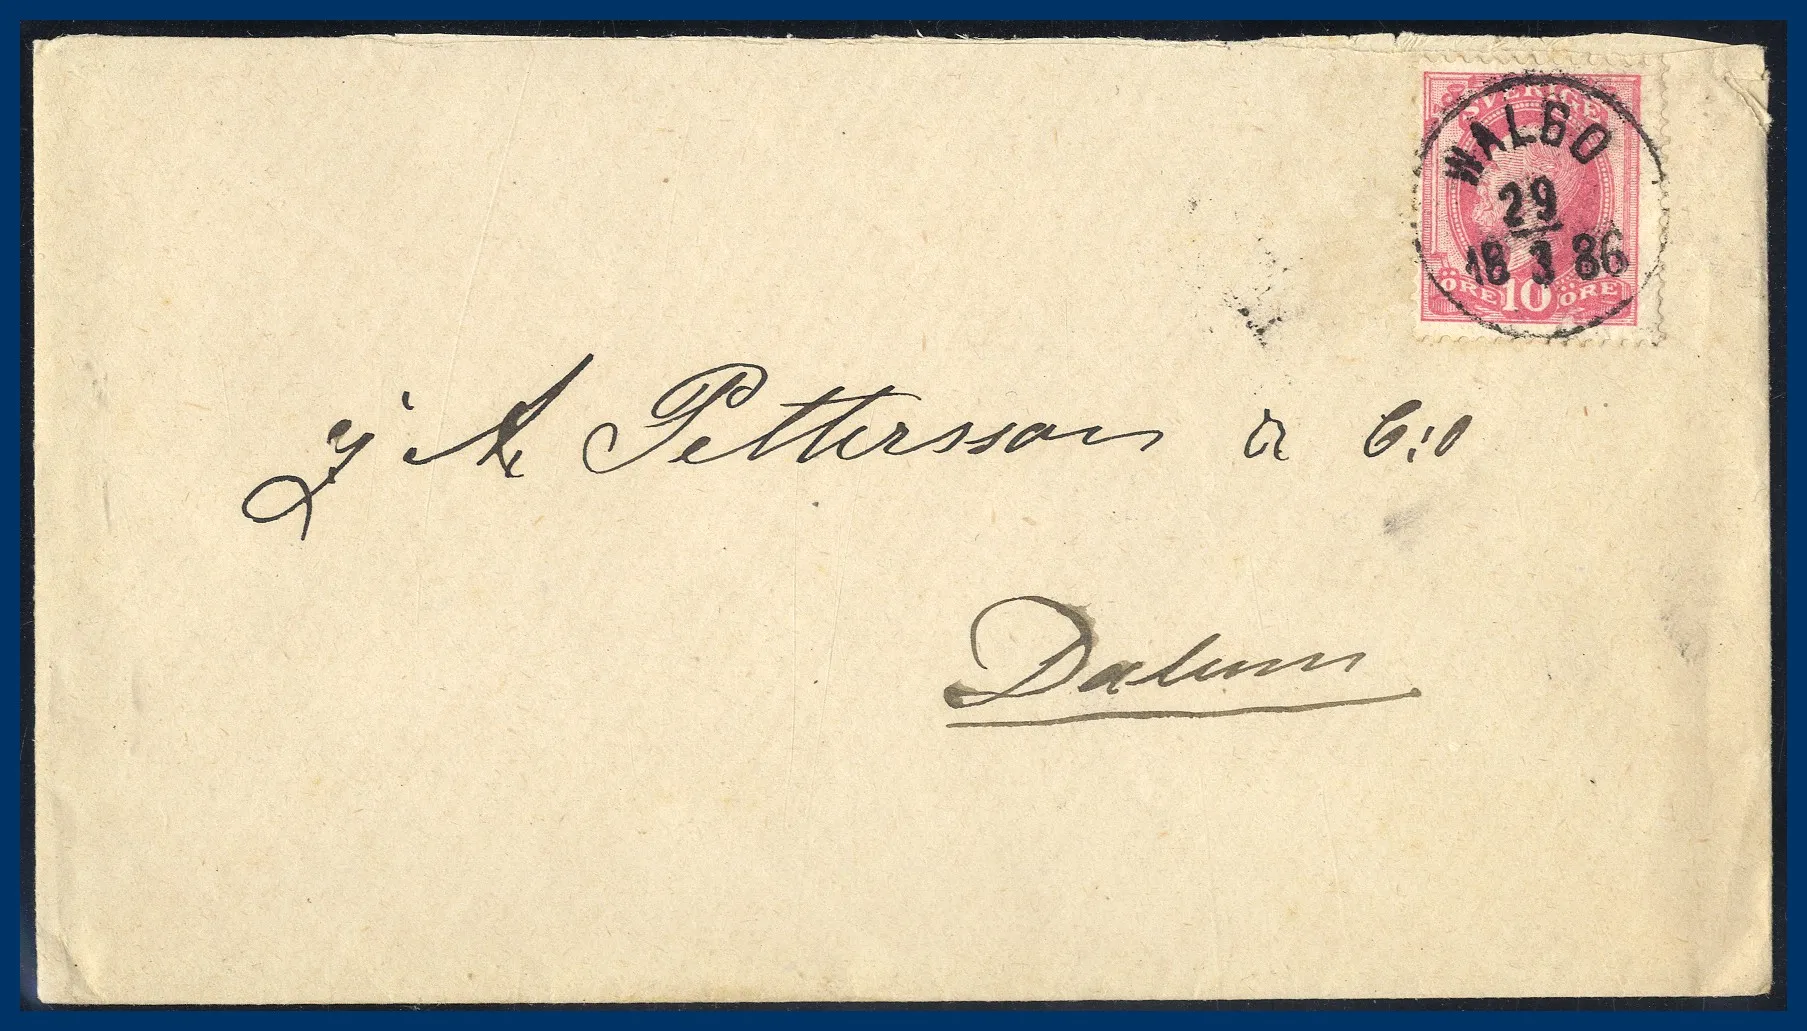 SVERIGE
WALBO
29
18 3 86
ÖRE 10 ÖRE
J A Pettersson & C:o
Dalum